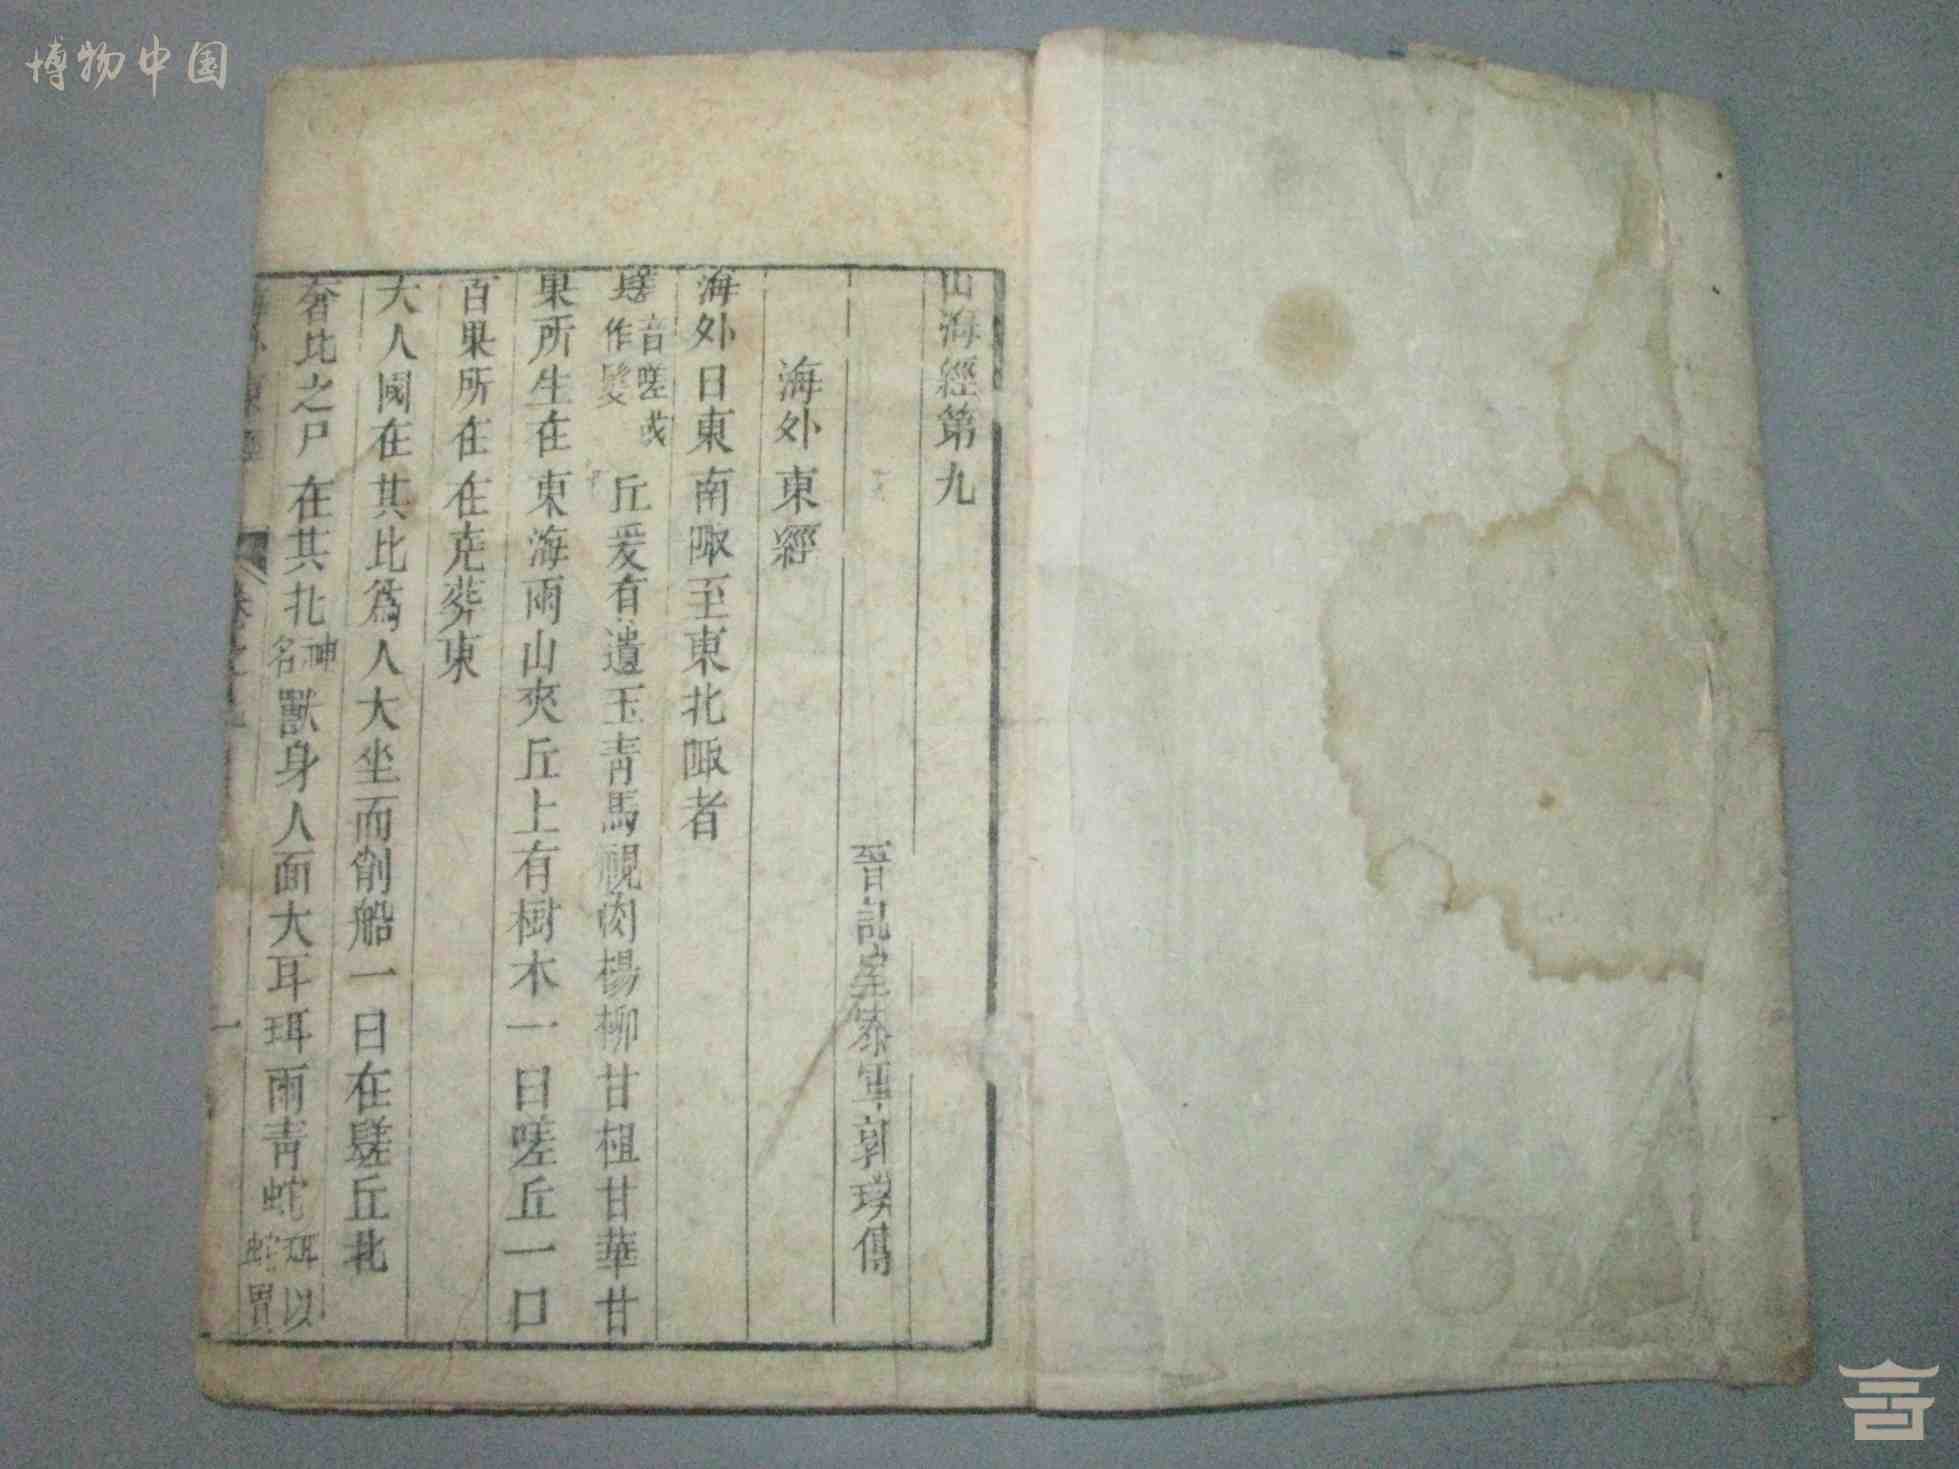 博物中国
山海經第九
晉記室叅軍郭璞傳
海外東經
海外自東南陬至東北陬者
𨲠音嗟或作髮丘爰有遺玉青馬視肉楊柳甘柤甘華甘
果所生在東海兩山夾丘上有樹木一曰嗟丘一曰
百果所在在堯葬東
大人國在其北為人大坐而削船一曰在𨲠丘北
奢比之尸在其北神名獸身人面大耳珥兩青蛇珥以蛇貫